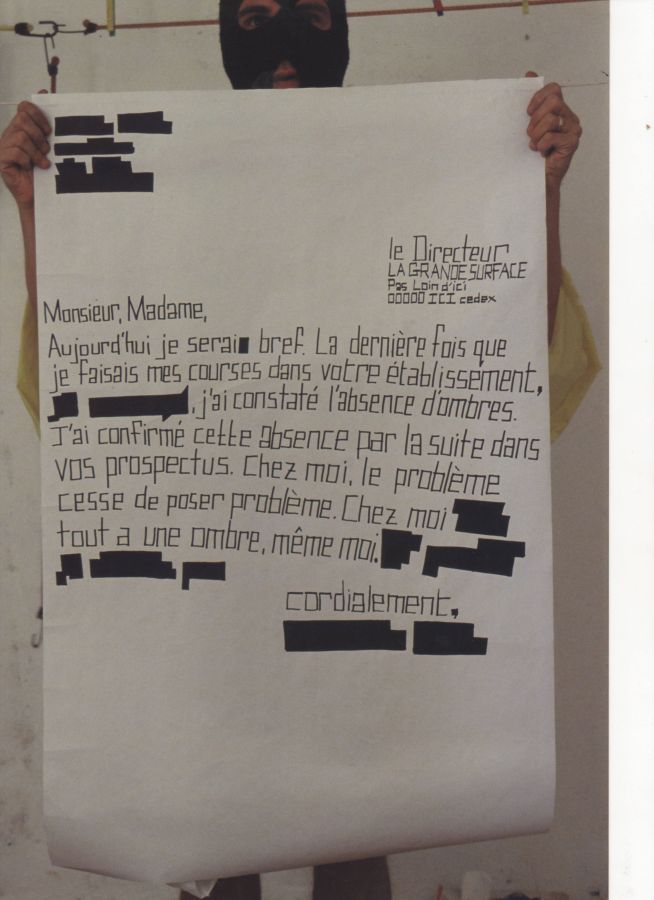 le Directeur
LA GRANDE SURFACE
Pas Loin d'ici
00000 ICI cedex
Monsieur, Madame,
Aujourd'hui je serai bref. La dernière fois que
je faisais mes courses dans votre établissement,
, j'ai constaté l'absence d'ombres.
J'ai confirmé cette absence par la suite dans
vos prospectus. Chez moi, le problème
cesse de poser problème. Chez moi
tout a une ombre, même moi.
cordialement,